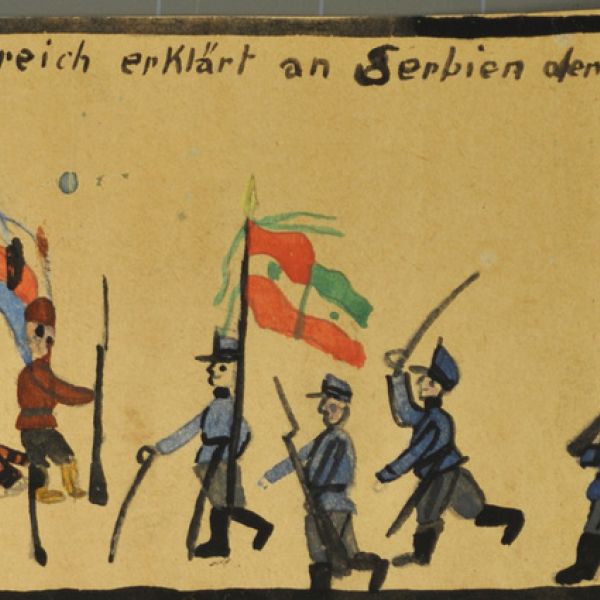 reich erklärt an Serbien den